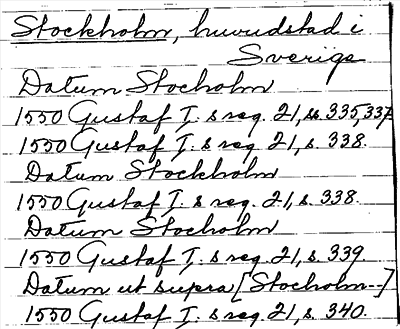 Stockholm, huvudstad i
Sverige
Datum Stocholm
1550 Gustaf I. s reg. 21, ss 335, 337
1550 Gustaf I. s reg 21, s. 338.
Datum Stockholm
1550 Gustaf I. s reg. 21, s. 338.
Datum Stocholm
1550 Gustaf I. s reg. 21, s. 339.
Datum ut supra [Stocholm--]
1550 Gustaf I. s reg. 21, s. 340.